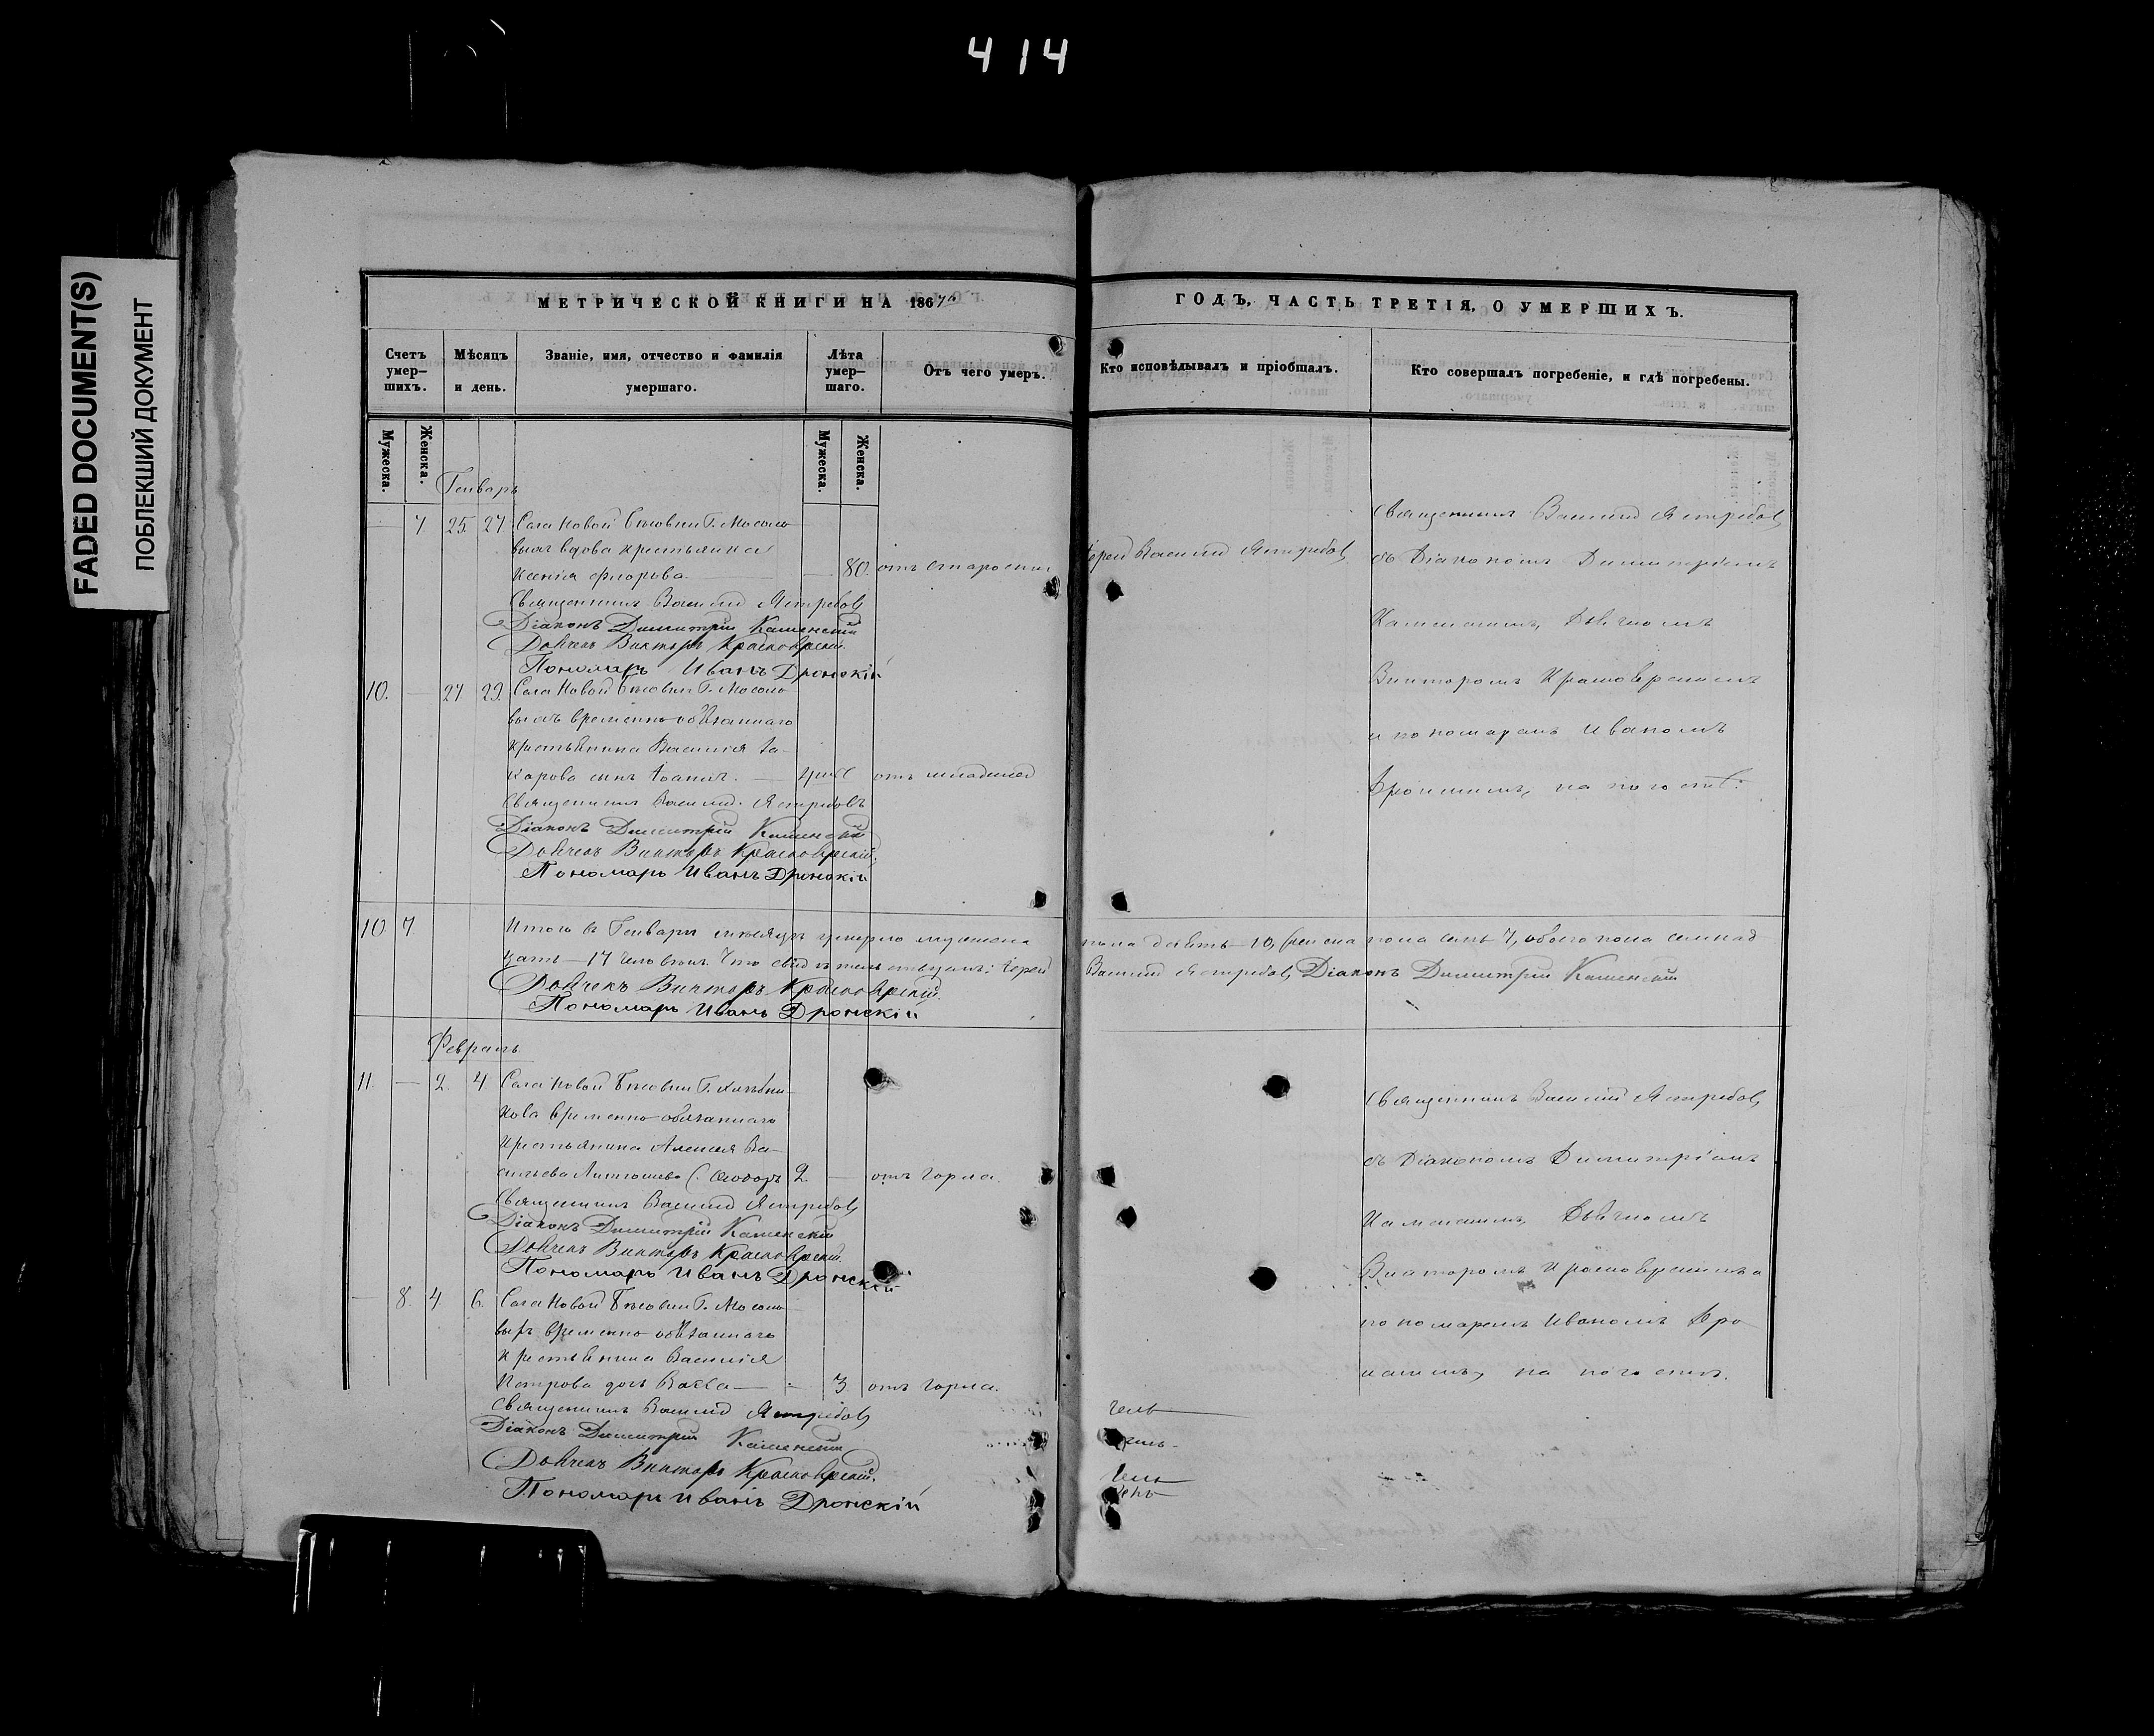 414
FADED DOCUMENT(S)
ПОБЛЕКШИЙ ДОКУМЕНТ
МЕТРИЧЕСКОЙ КНИГИ НА 1867й
Счетъ умер–шихъ.
Мѣсяцъ и день.
Званіе, имя, отчество и фамилія умершаго.
Лѣта умер–шаго.
Отъ чего умеръ.
Мужеска.
Женска.
Мужеска.
Женска.
Генварь
7 25. 27. Села Новой г. Мосоло
выхъ вдова крестьянка
Ксенія Флорова 80. отъ старости
Священникъ Василій Ястребовъ
Діаконъ Димитрій Каменскій
Дьячекъ Викторъ Красноврскій
Пономарь Иванъ Дронскій
10. — 27 29. Села Новой г. Мосоло
выхъ временно-обязаннаго
крестьянина Василія За-
харова сынъ Іоаннъ. —
Священникъ Василій Ястребовъ
Діаконъ Димитрій Каменскій
Дьячекъ Викторъ
Пономарь Иванъ Дронскій
10 7 Итого въ Генварѣ мѣсяцѣ умерло мужеска
цать — 17 человѣкъ. Что свидѣтельствуемъ: Іерей
Дьячекъ Викторъ
Пономарь Иванъ Дронскій
Февраль
11. — 2. 4. Села Новой г.
кова временно-обязаннаго
крестьянина Алексея Ва-
сильева с. Ѳеодоръ 2. — отъ горла.
Священникъ Василій Ястребовъ
Діаконъ Димитрій Каменскій
Дьячекъ Викторъ
Пономарь Иванъ Дронскій
— 8. 4. 6. Села Новой г. Мосоло
выхъ временно-обязаннаго
крестьянина Василія
Петрова дочь Васса — 3 отъ горла.
Священникъ Василій Ястребовъ
Діаконъ Димитрій Каменскій
Дьячекъ Викторъ
Пономарь Иванъ Дронскій
ГОДЪ, ЧАСТЬ ТРЕТІЯ, О УМЕРШИХЪ.
Кто исповѣдывалъ и пріобщалъ.
Кто совершалъ погребеніе, и гдѣ погребены.
Іерей Василій Ястребовъ
Священникъ Василій Ястребовъ
съ Діакономъ Димитріемъ
Каменскимъ, Дьячкомъ
Викторомъ
и пономаремъ Иваномъ
Дронскимъ, на погостѣ.
пола десять — 10, женска пола семь 7, обоего пола семнад
Василій Ястребовъ, Діаконъ Димитрій Каменскій
Священникъ Василій Ястребовъ,
съ Діакономъ Димитріемъ
Каменскимъ, Дьячкомъ
Викторомъ и
пономаремъ Иваномъ Дро
нскимъ, на погостѣ.